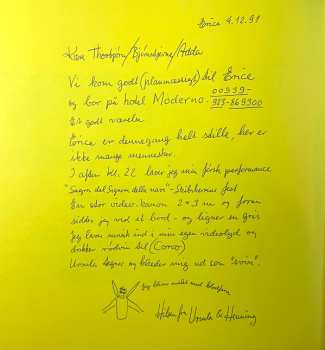 Erice 4.12.91
Kære Thorbjørn/Bjørnstjerne/Adda
Vi kom godt (planmæssigt) til Erice
og bor på hotel Moderno. 00939-
923-869300
Et godt værelse
Erice er dennegang helt stille, her er
ikke mange mennesker.
I aften kl. 22 laver jeg min første performance
"Sagra del Signore della nave" - fest
En stor video-kanon 2 x 3 m og foran
sidder jeg ved et bord - og ligner en gris
Jeg laver musik ind i min egen videolyd og
drikker rødvin til (Corvo)
Ursula tegner og klæder mig ud som "svin".
Jeg bliver malet med
Hilsen fra
Ursula & Henning